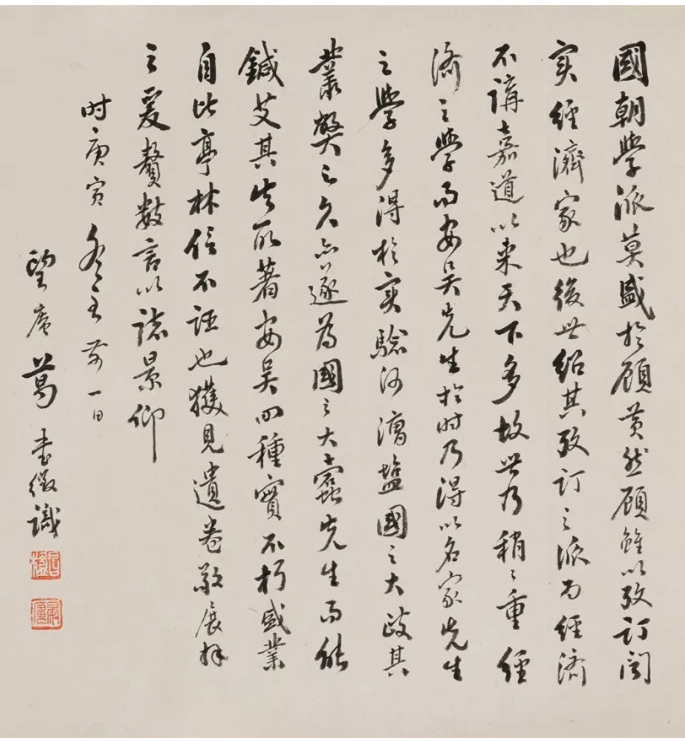 國朝學派莫盛於顧黃然顧雖以攷訂聞
实經濟家也後世紹其攷訂之派而經濟
不講嘉道以来天下多故世乃稍〻重經
濟之學而安吴先生於时乃得以名家先生
之學多得於实驗河漕鹽國之大政其
叢獘之久亦遂為國之大蠹先生而能
鍼芟其失所著安吴四種實不朽盛業
自比亭林信不誣也獲見遺卷敬展拜
之爰贅數言以誌景仰
时庚寅冬至前一日
望唐葛書徵識